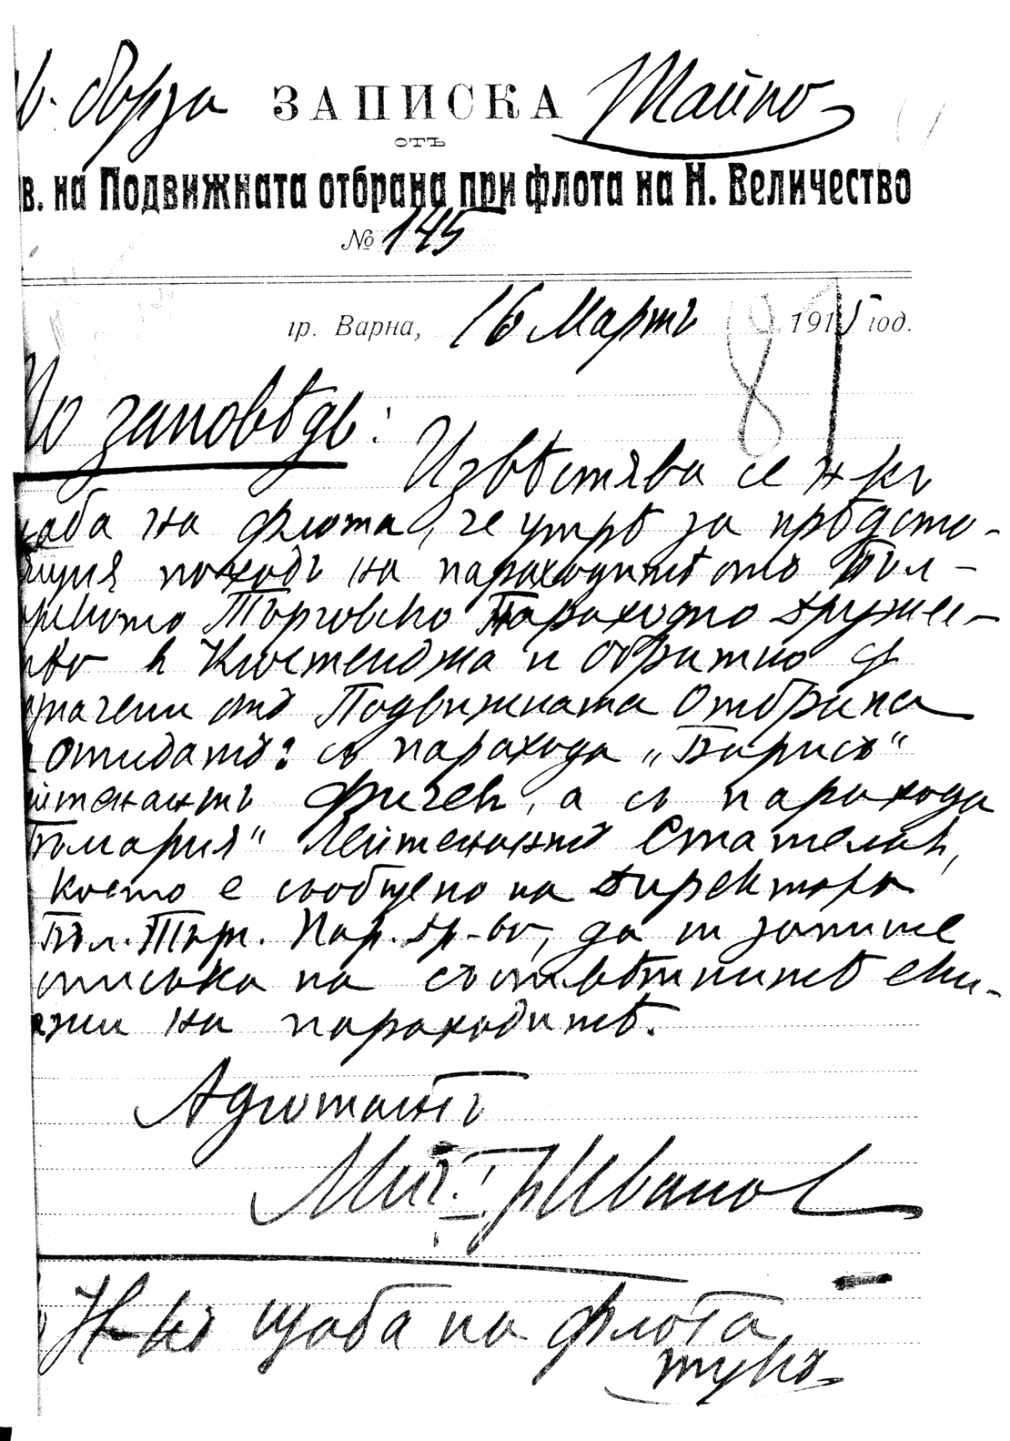 бърза ЗАПИСКА Тайно
отъ
в. на Подвижната отбрана при флота на Н. Величество
№ 145
гр. Варна, 16 Мартъ 1915 год.
По заповѣдь:
Извѣстява се Н-къ
щаба на флота, че утрѣ за прѣдсто-
ящия походъ на параходитѣ отъ Бъл-
гарското Търговско Параходно Друже-
ство в Кюстенджа и обратно сѫ
назначени отъ Подвижната Отбрана
да отидатъ: съ парахода „Борисъ“
лейтенантъ Фичев, а съ парахода
„България“ Лейтенантъ Стателов,
което е съобщено на Директора
Бъл. Търг. Пар. Др-во, да ги запише
списъка на съответнитѣ еки-
пажи на параходитѣ.
Адютантъ
Мич. I р. Иванов
Н-къ щаба на флота
тукъ